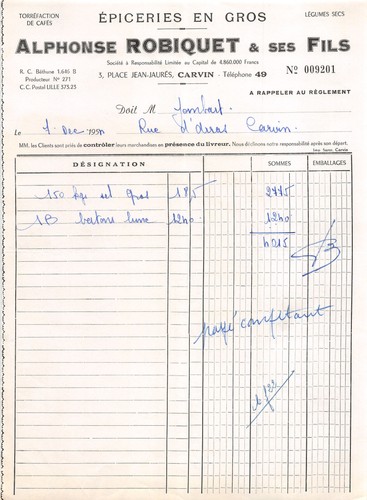 TORRÉFACTION DE CAFÉS
ÉPICERIES EN GROS
LÉGUMES SECS
ALPHONSE ROBIQUET & SES FILS
Société à Responsabilité Limitée au Capital de 4.860.000 Francs
R. C. Béthune 1.645 B
Producteur Nº 271
C.C. Postal LILLE 573.25
3, PLACE JEAN-JAURÈS, CARVIN - Téléphone 49
Nº 009201
A RAPPELER AU RÈGLEMENT
Doit M Jombart
Le 7 Dec 195 Rue d'Arras Carvin
MM. les Clients sont priés de contrôler leurs marchandises en présence du livreur. Nous déclinons notre responsabilité après son départ.
DÉSIGNATION SOMMES EMBALLAGES
150 kgs sel gros 18,5 2775
1B 1240 1240
4015
payé comptant